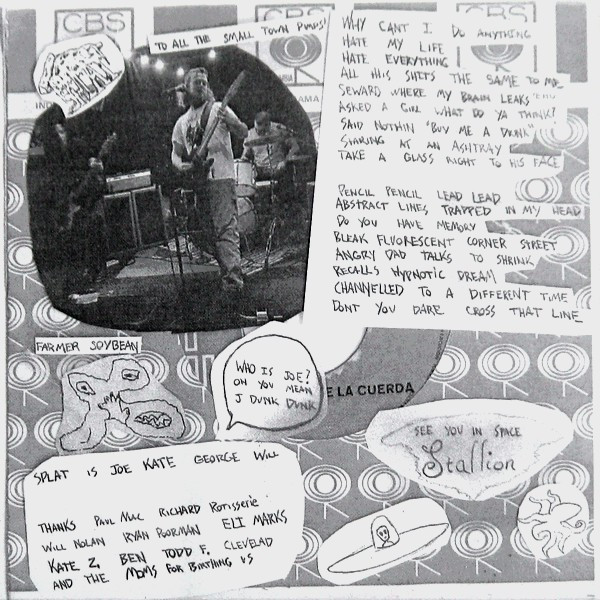 CBS
CBS
TO ALL THE SMALL TOWN PUNKS!
WHY CANT I DO ANYTHING
HATE MY LIFE
HATE EVERYTHING
ALL THIS SHITS THE SAME TO ME
SEWARD WHERE MY BRAIN LEAKS
ASKED A GIRL WHAT DO YA THINK?
SAID NOTHIN "BUY ME A DRINK"
STARING AT AN ASHTRAY
TAKE A GLASS RIGHT TO HIS FACE
PENCIL PENCIL LEAD LEAD
ABSTRACT LINES TRAPPED IN MY HEAD
DO YOU HAVE MEMORY
BLEAK FLUORESCENT CORNER STREET
ANGRY DAD TALKS TO SHRINK
RECALLS HYPNOTIC DREAM
CHANNELLED TO A DIFFERENT TIME
DONT YOU DARE CROSS THAT LINE
FARMER SOYBEAN
WHO IS JOE?
OH YOU MEAN
J DUNK DUNK
E LA CUERDA
SEE YOU IN SPACE
Stallion
SPLAT IS JOE KATE GEORGE WILL
THANKS PAUL NUC RICHARD ROTISSERIE
WILL NOLAN RYAN POORMAN ELI MARKS
KATE Z, BEN TODD F, CLEVELAD
AND THE MOMS FOR BIRTHING US